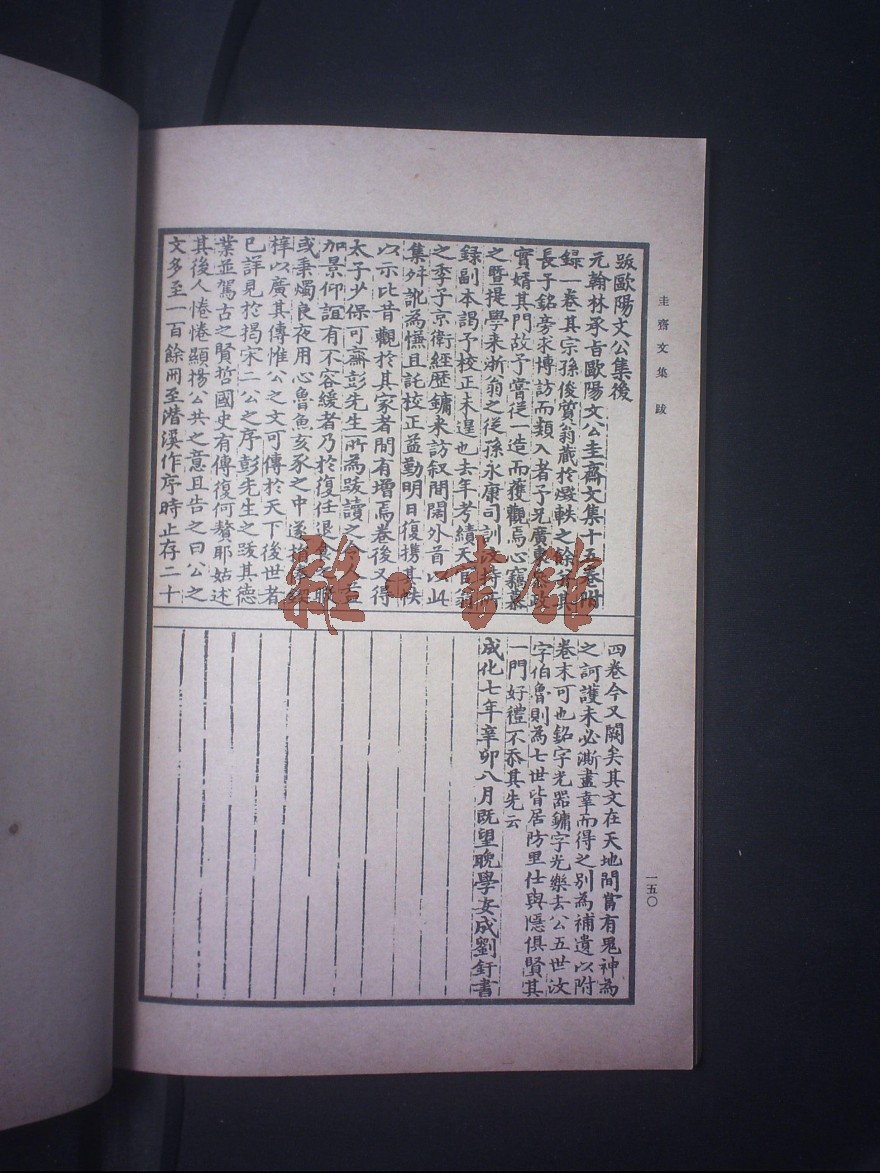 圭齋文集 跋
跋歐陽文公集後
元翰林承旨歐陽文公圭齋文集十五卷附
録一卷其宗孫俊實翁藏於燬軼之餘
長子銘旁求博訪而類入者予兄廣東
實婿其門故予嘗從一造而獲觀焉心竊慕
之暨提學来浙翁之從孫永康司訓汶持所
録副本謁予校正未遑也去年考績天官翁
之季子京衛經歷鏞来訪叙間闊外首以此
集舛訛為憮且託校正益勤明日復携其帙
以示比昔觀於其家者間有增焉卷後又得
太子少保可齋彭先生所為跋讀之益
加景仰誼有不容緩者乃於復任退食之暇
或秉燭良夜用心魯魚亥豕之中遂
梓以廣其傳惟公之文可傳於天下後世者
已詳見於揭宋二公之序彭先生之跋其德
業並駕古之賢哲國史有傳復何贅耶姑述
其後人惓惓顯揚公共之意且告之曰公之
文多至一百餘册至潜溪作序時止存二十
四卷今又闕矣其文在天地間當有鬼神為
之訶護未必澌盡幸而得之别為補遺以附
卷末可也銘字光噐鏞字光樂去公五世汶
字伯魯則為七世皆居防里仕與隱俱賢其
一門好禮不忝其先云
成化七年辛卯八月既望晚學安成劉釪書
一五〇
雜·書館